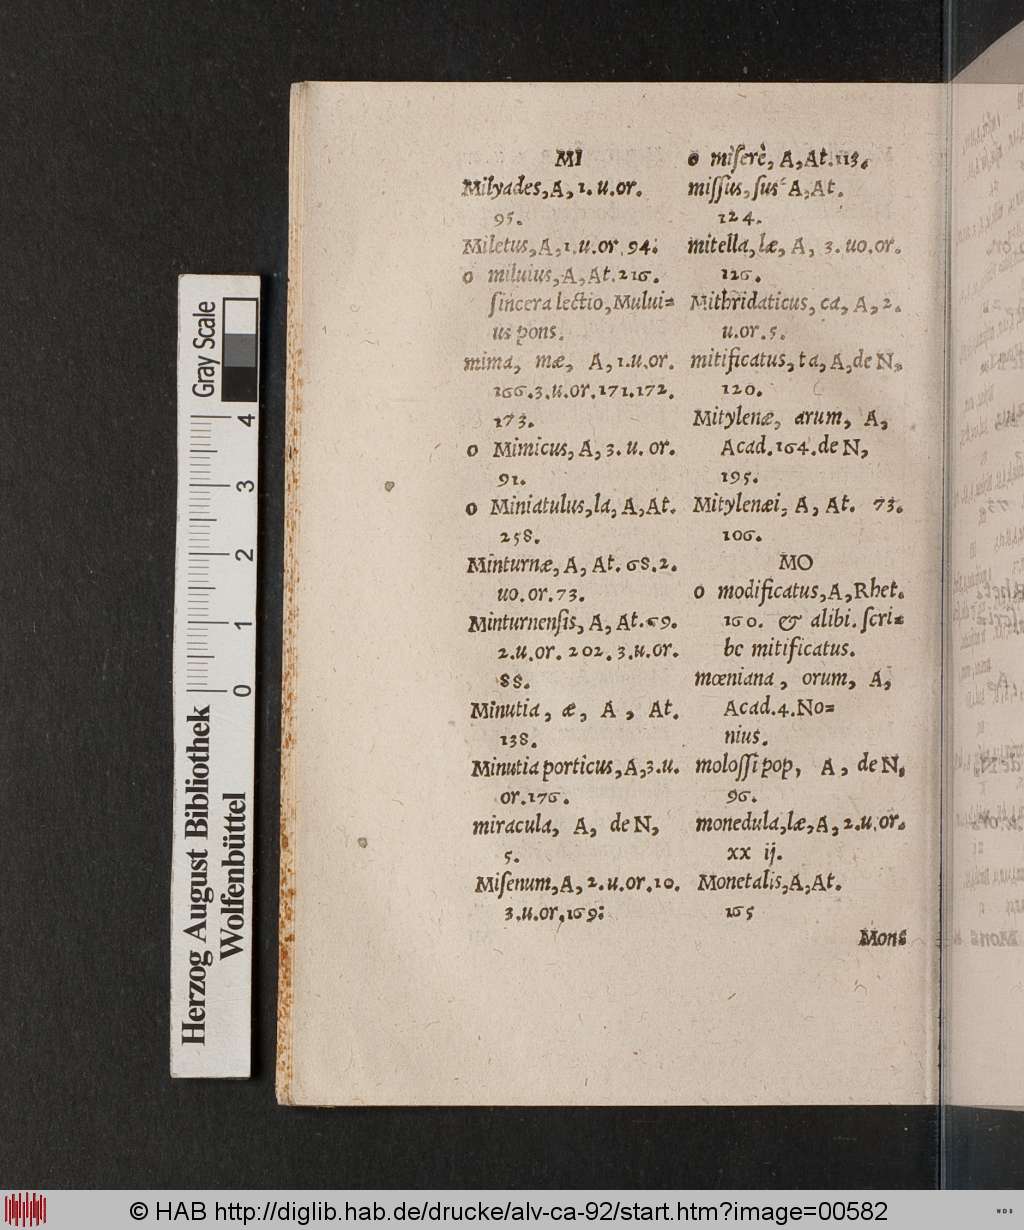 MI
Milyades, A, 1. u. or.
95.
Miletus, A, 1. u. or. 94:
o miluius, A, At. 216.
sincera lectio, Mului=
us pons.
mima, mæ, A, 1. u. or.
166. 3. u. or. 171. 172.
173.
o Mimicus, A, 3. u. or.
91.
o Miniatulus, la, A, At.
258.
Minturnæ, A, At. 68. 2.
uo. or. 73.
Minturnensis, A, At. 69.
2. u. or. 202. 3. u. or.
88.
Minutia, æ, A, At.
138.
Minutia porticus, A, 3. u.
or. 176.
miracula, A, de N,
5.
Misenum, A, 2. u. or. 10.
3. u. or. 169:
o miserè, A, At. 113.
missus, sus A, At.
124.
mitella, læ, A, 3. uo. or.
126.
Mithridaticus, ca, A, 2.
u. or. 5.
mitificatus, ta, A, de N,
120.
Mitylenæ, arum, A,
Acad. 164. de N,
195.
Mitylenæi, A, At. 73.
106.
MO
o modificatus, A, Rhet.
160. & alibi. scri=
be mitificatus.
mœniana, orum, A,
Acad. 4. No=
nius.
molossi pop, A, de N,
96.
monedula, læ, A, 2. u. or.
xx ij.
Monetalis, A, At.
165
Mons
Gray Scale
4
3
2
1
0
Herzog August Bibliothek
Wolfenbüttel
© HAB http://diglib.hab.de/drucke/alv-ca-92/start.htm?image=00582